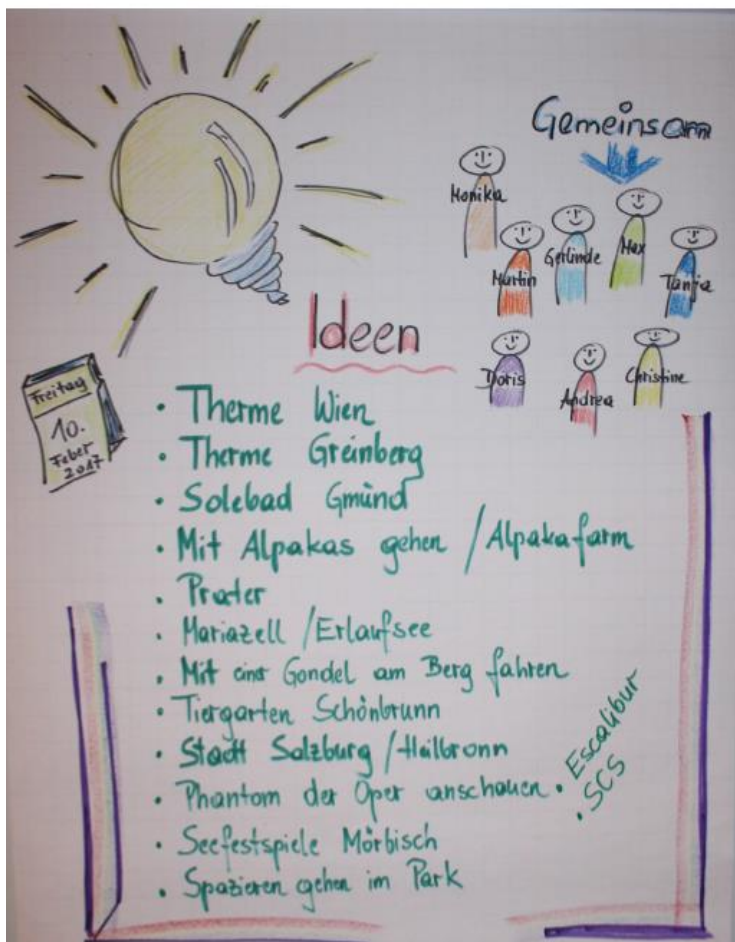 Gemeinsam
Monika
Martin
Gerlinde
Max
Tanja
Doris
Andrea
Christine
Ideen
Freitag
10.
Feber
2017
• Therme Wien
• Therme Greinberg
• Solebad Gmünd
• Mit Alpakas gehen / Alpakafarm
• Prater
• Mariazell / Erlaufsee
• Mit einer Gondel am Berg fahren
• Tiergarten Schönbrunn
• Stadt Salzburg / Heilbronn
• Phantom der Oper anschauen
• Seefestspiele Mörbisch
• Spazieren gehen im Park
• Escalibur
• SCS